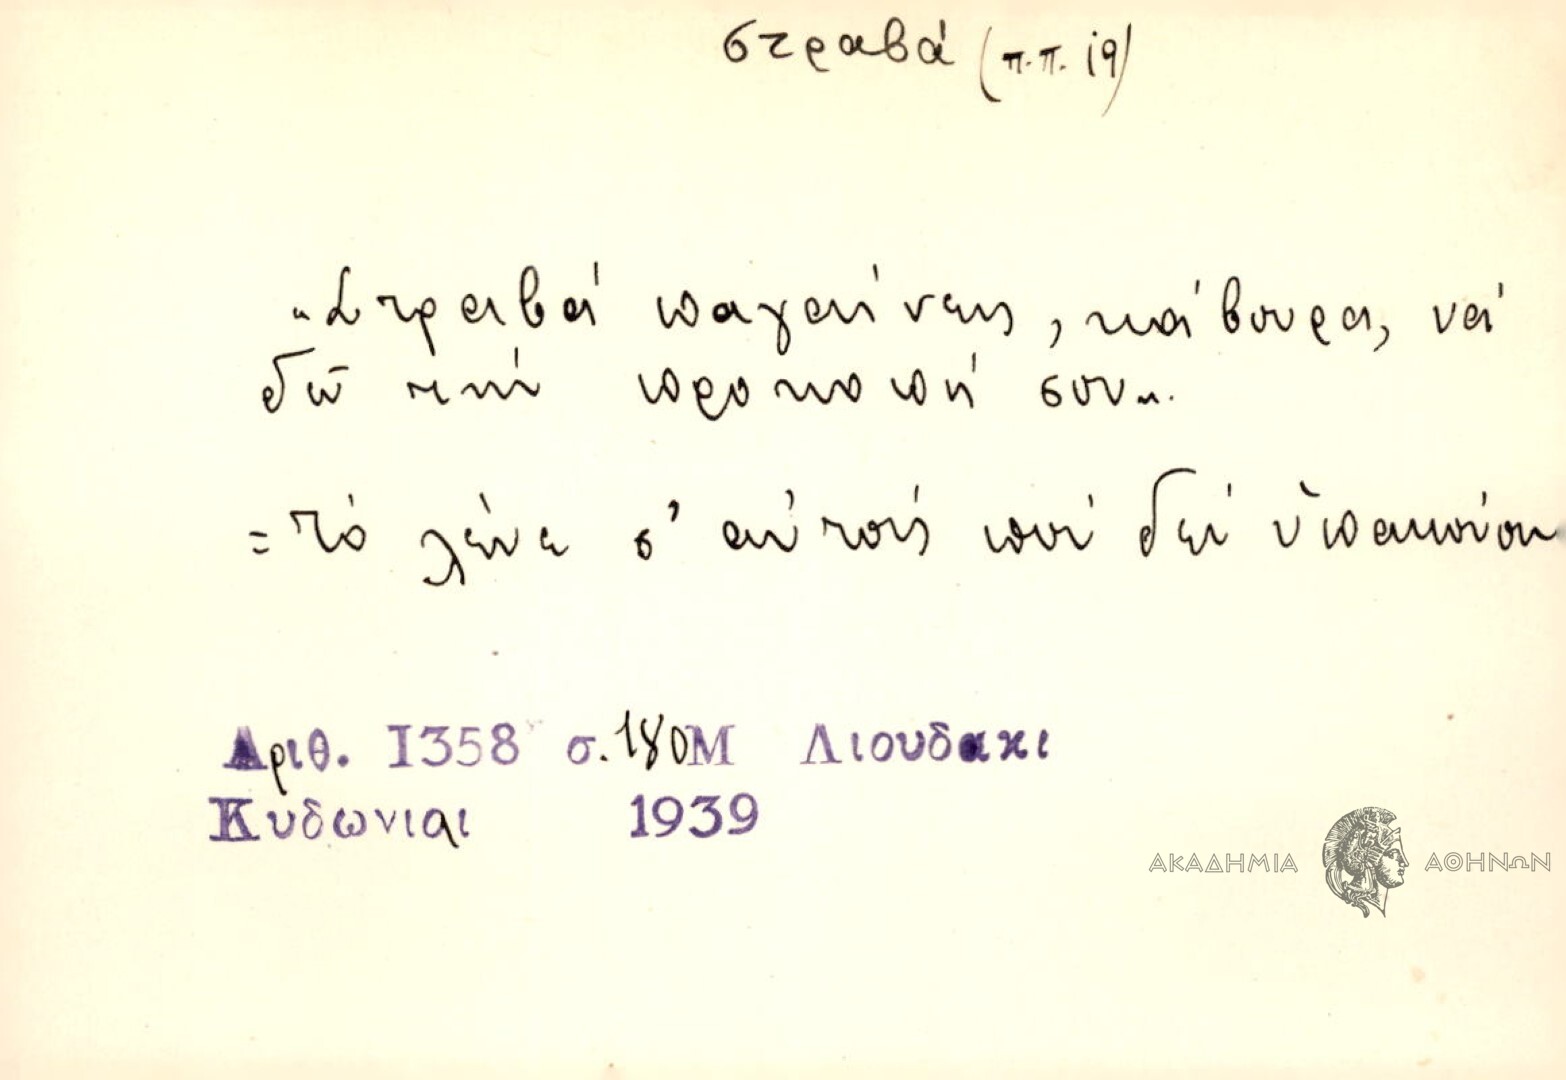 στραβά (π.π. 19)
„Στραβά παγαίνεις, κάβουρα, νά
δῶ τηή προκοπή σου".
= Τό λένε σ' αὐτούς πού δέν ὑπακούου
Αριθ. 1358 σ. 180 Μ Λιουδακι
Κυδωνιαι 1939
ΑΚΑΔΗΜΙΑ ΑΘΗΝΩΝ